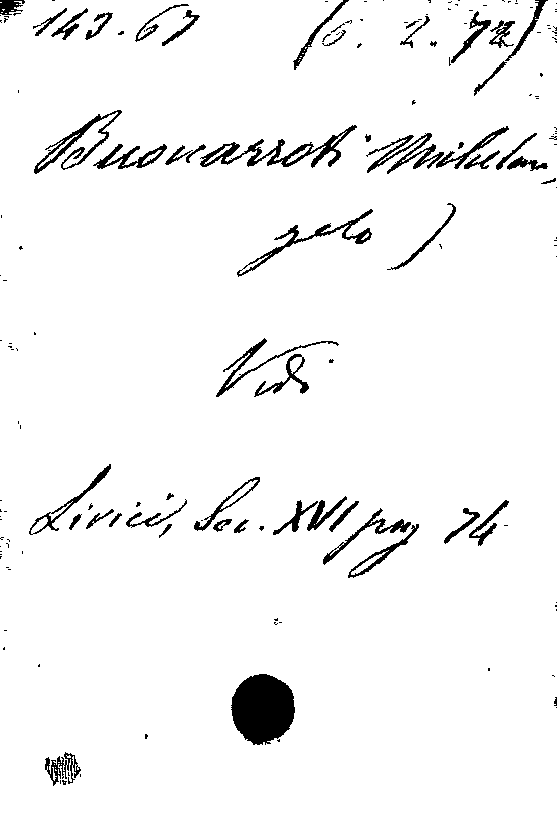 143.67 (6. 2. 72)
Buonarroti Michelan,
gelo ).
Vedi
Lirici, Sec. XVI pag 74